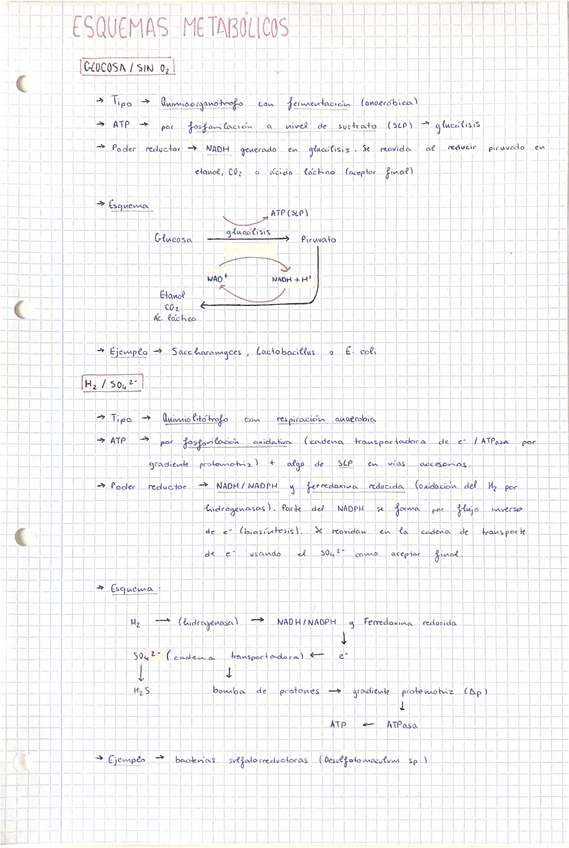 ESQUEMAS METABÓLICOS
GLUCOSA / SIN O₂
→ Tipo → Quimiorganótrofo con fermentación (anaeróbica)
→ ATP → por fosforilación a nivel de sustrato (SLP) → glucólisis
→ Poder reductor → NADH generado en glucólisis. Se reoxida al reducir piruvato en
etanol, CO₂ o ácido láctico (aceptor final)
→ Esquema
ATP (SLP)
Glucosa glucólisis Piruvato
NAD⁺ NADH + H⁺
Etanol
CO₂
Ác láctico
→ Ejemplo → Saccharomyces, Lactobacillus o E. coli
H₂ / SO₄²⁻
→ Tipo → Quimiolitótrofo con respiración anaerobia
→ ATP → por fosforilación oxidativa (cadena transportadora de e⁻ / ATPasa por
gradiente protomotriz) + algo de SLP en vías accesorias.
→ Poder reductor → NADH/NADPH y ferredoxina reducida (oxidación del H₂ por
hidrogenasas). Parte del NADPH se forma por flujo inverso
de e⁻ (biosíntesis). Se reoxidan en la cadena de transporte
de e⁻ usando el SO₄²⁻ como aceptor final.
→ Esquema :
H₂ → (hidrogenasa) → NADH/NADPH y Ferredoxina reducida
↓
SO₄²⁻ (cadena transportadora) ← e⁻
↓ ↓
H₂S bomba de protones → gradiente protomotriz (Δp)
↓
ATP ← ATPasa
→ Ejemplo → bacterias sulfatorreductoras (Desulfotomaculum sp.)